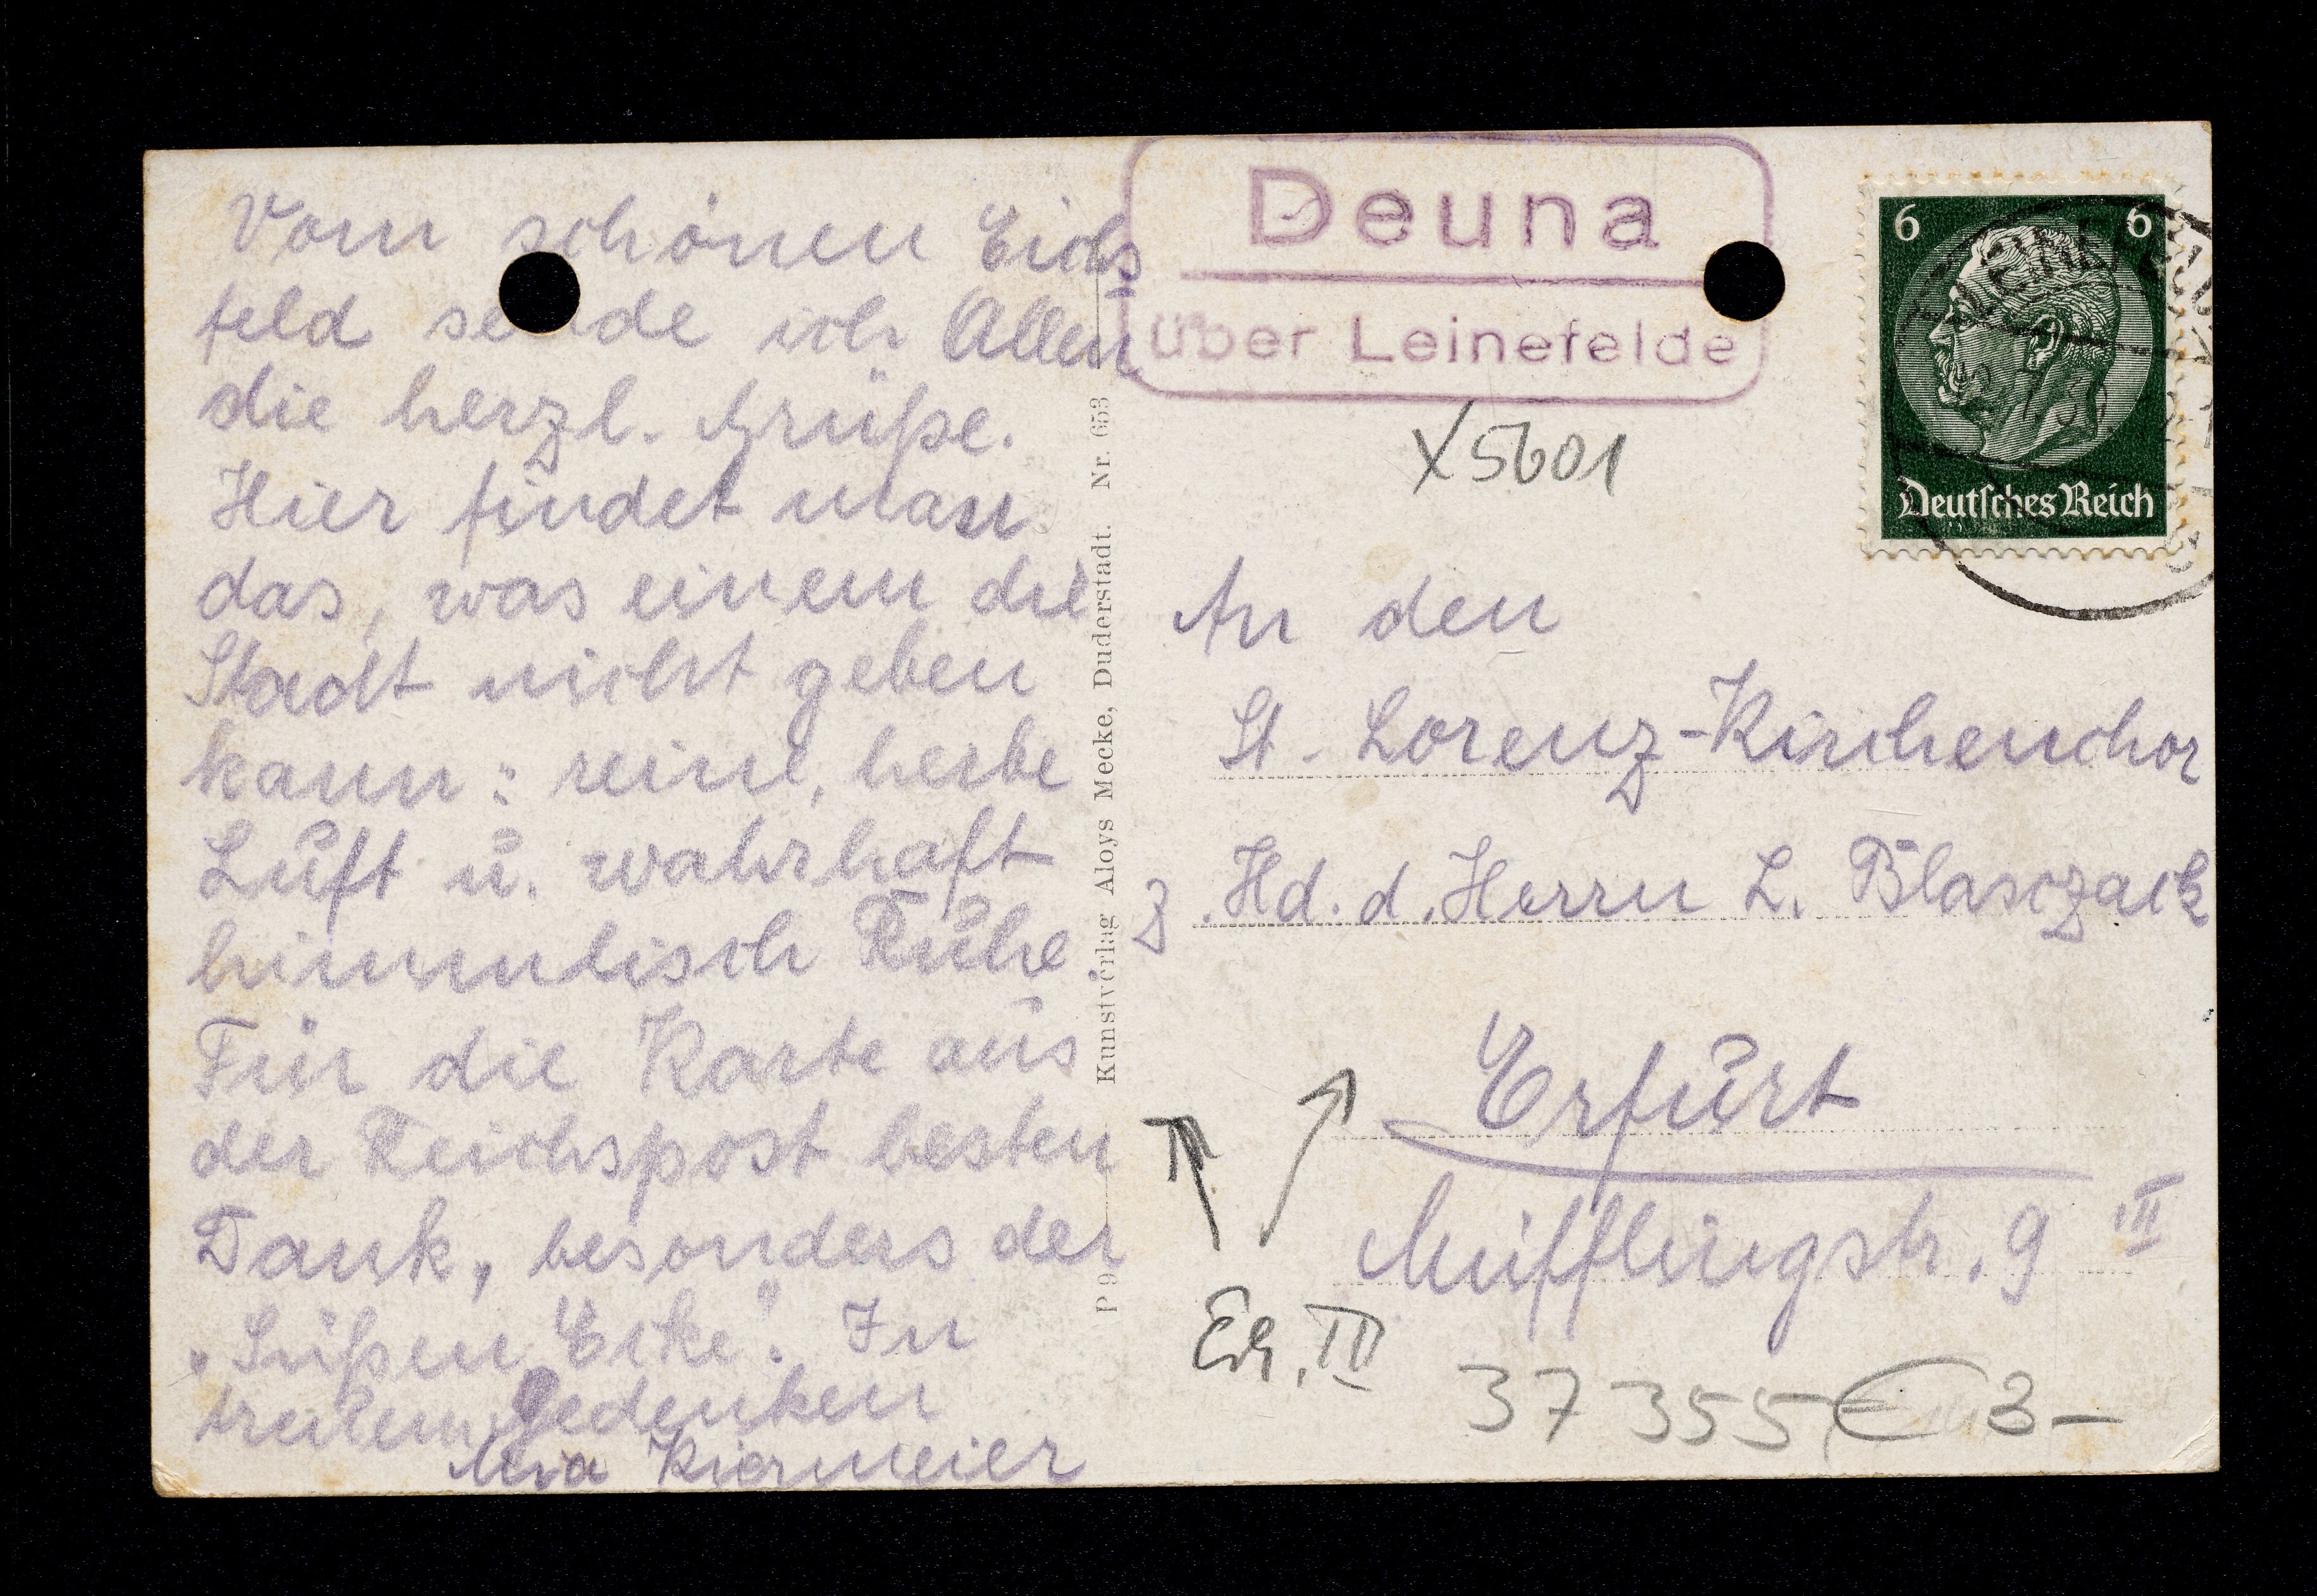 Vom schönen Eichs
feld sende ich Allen
die herzl. Grüße.
Hier findet man
das, was einem die
Stadt nicht geben
kann: reine, herbe
Luft u. wahrhaft
himmlisch Ruhe.
Für die Karte aus
der Reichspost besten
Dank, besonders der
„Süßen Ecke". In
treuem Gedenken
Mia Kiermeier
Kunstverlag Aloys Mecke, Duderstadt. Nr. 653
P 9
Deuna
über Leinefelde
X5601
6 6
Deutsches Reich
An den
St. Lorenz-Kirchenchor
z. Hd. d. Herrn L. Blasczack
Erfurt
Mifflingstr. 9 III
37355 € 3-